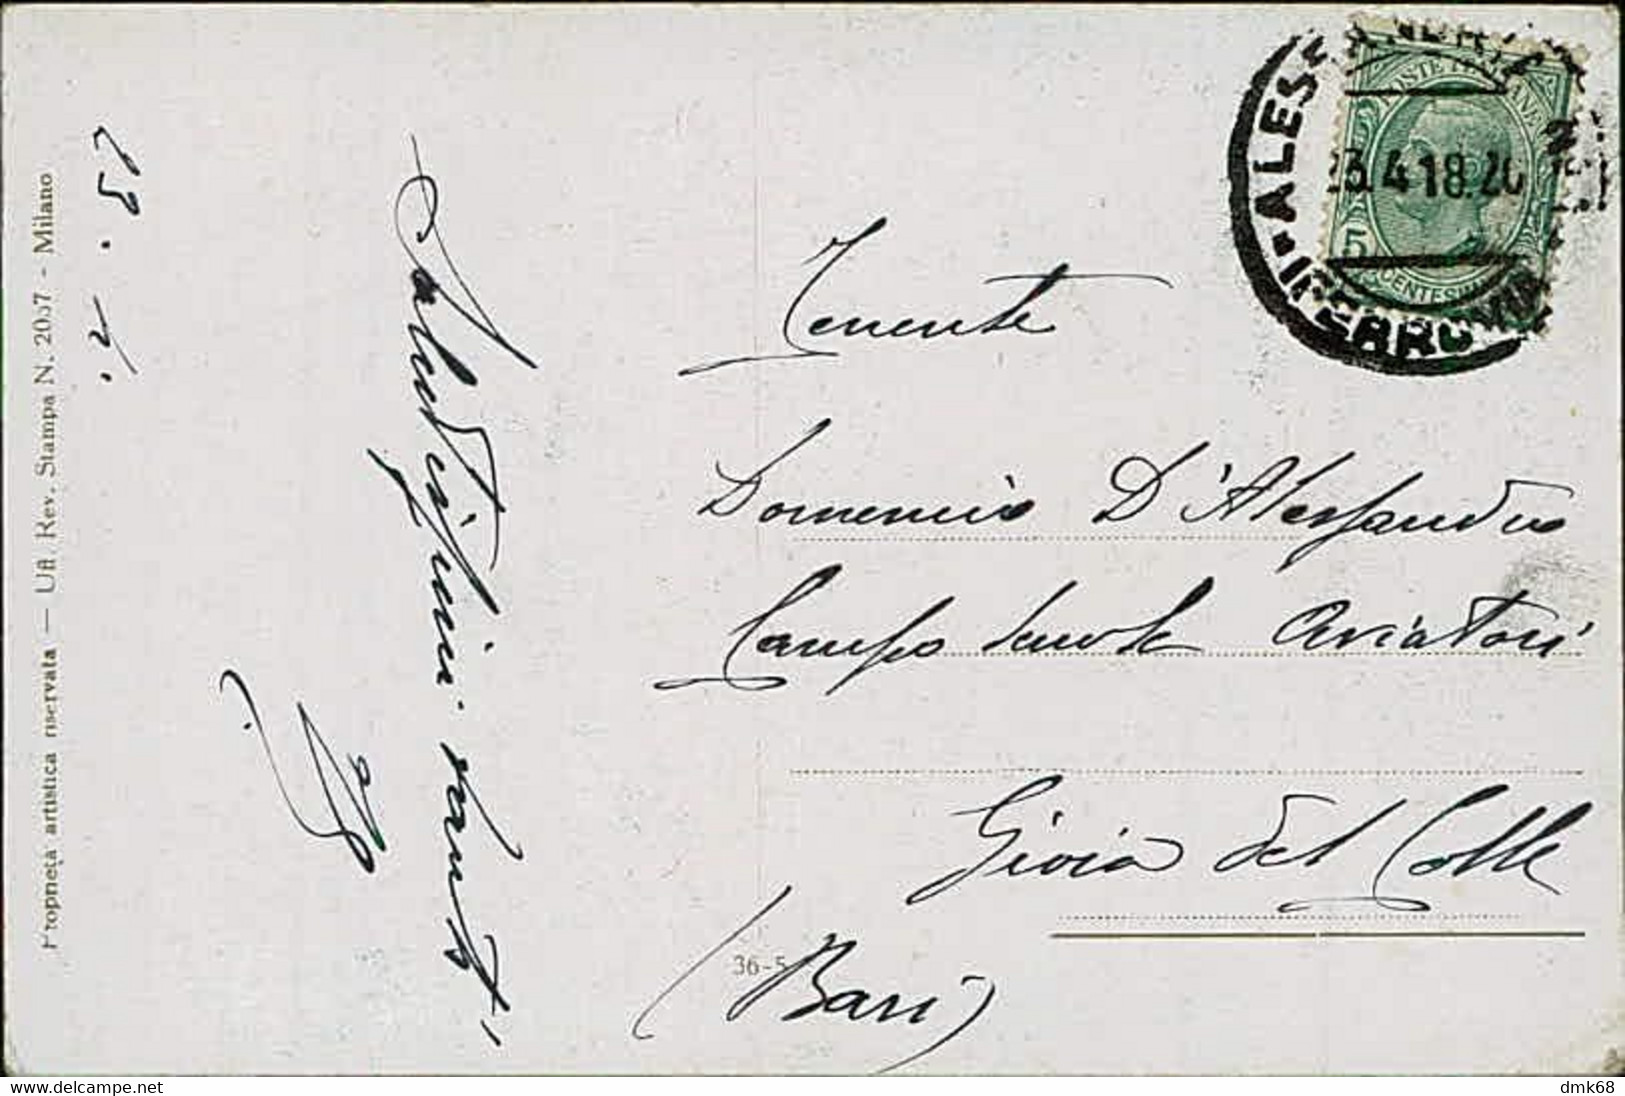 Proprietà artistica riservata — Uff. Rev. Stampa N. 2067 - Milano
23. 4.
Saluti
ALESSANDRIA
FERROVIA
23.4 18.20
POSTE ITALIANE
5
CENTESIMI
Tenente
Domenico D'Alessandro
Campo Scuola Aviatori
Gioia del Colle
36-5
(Bari)
delcampe.net
dmk68